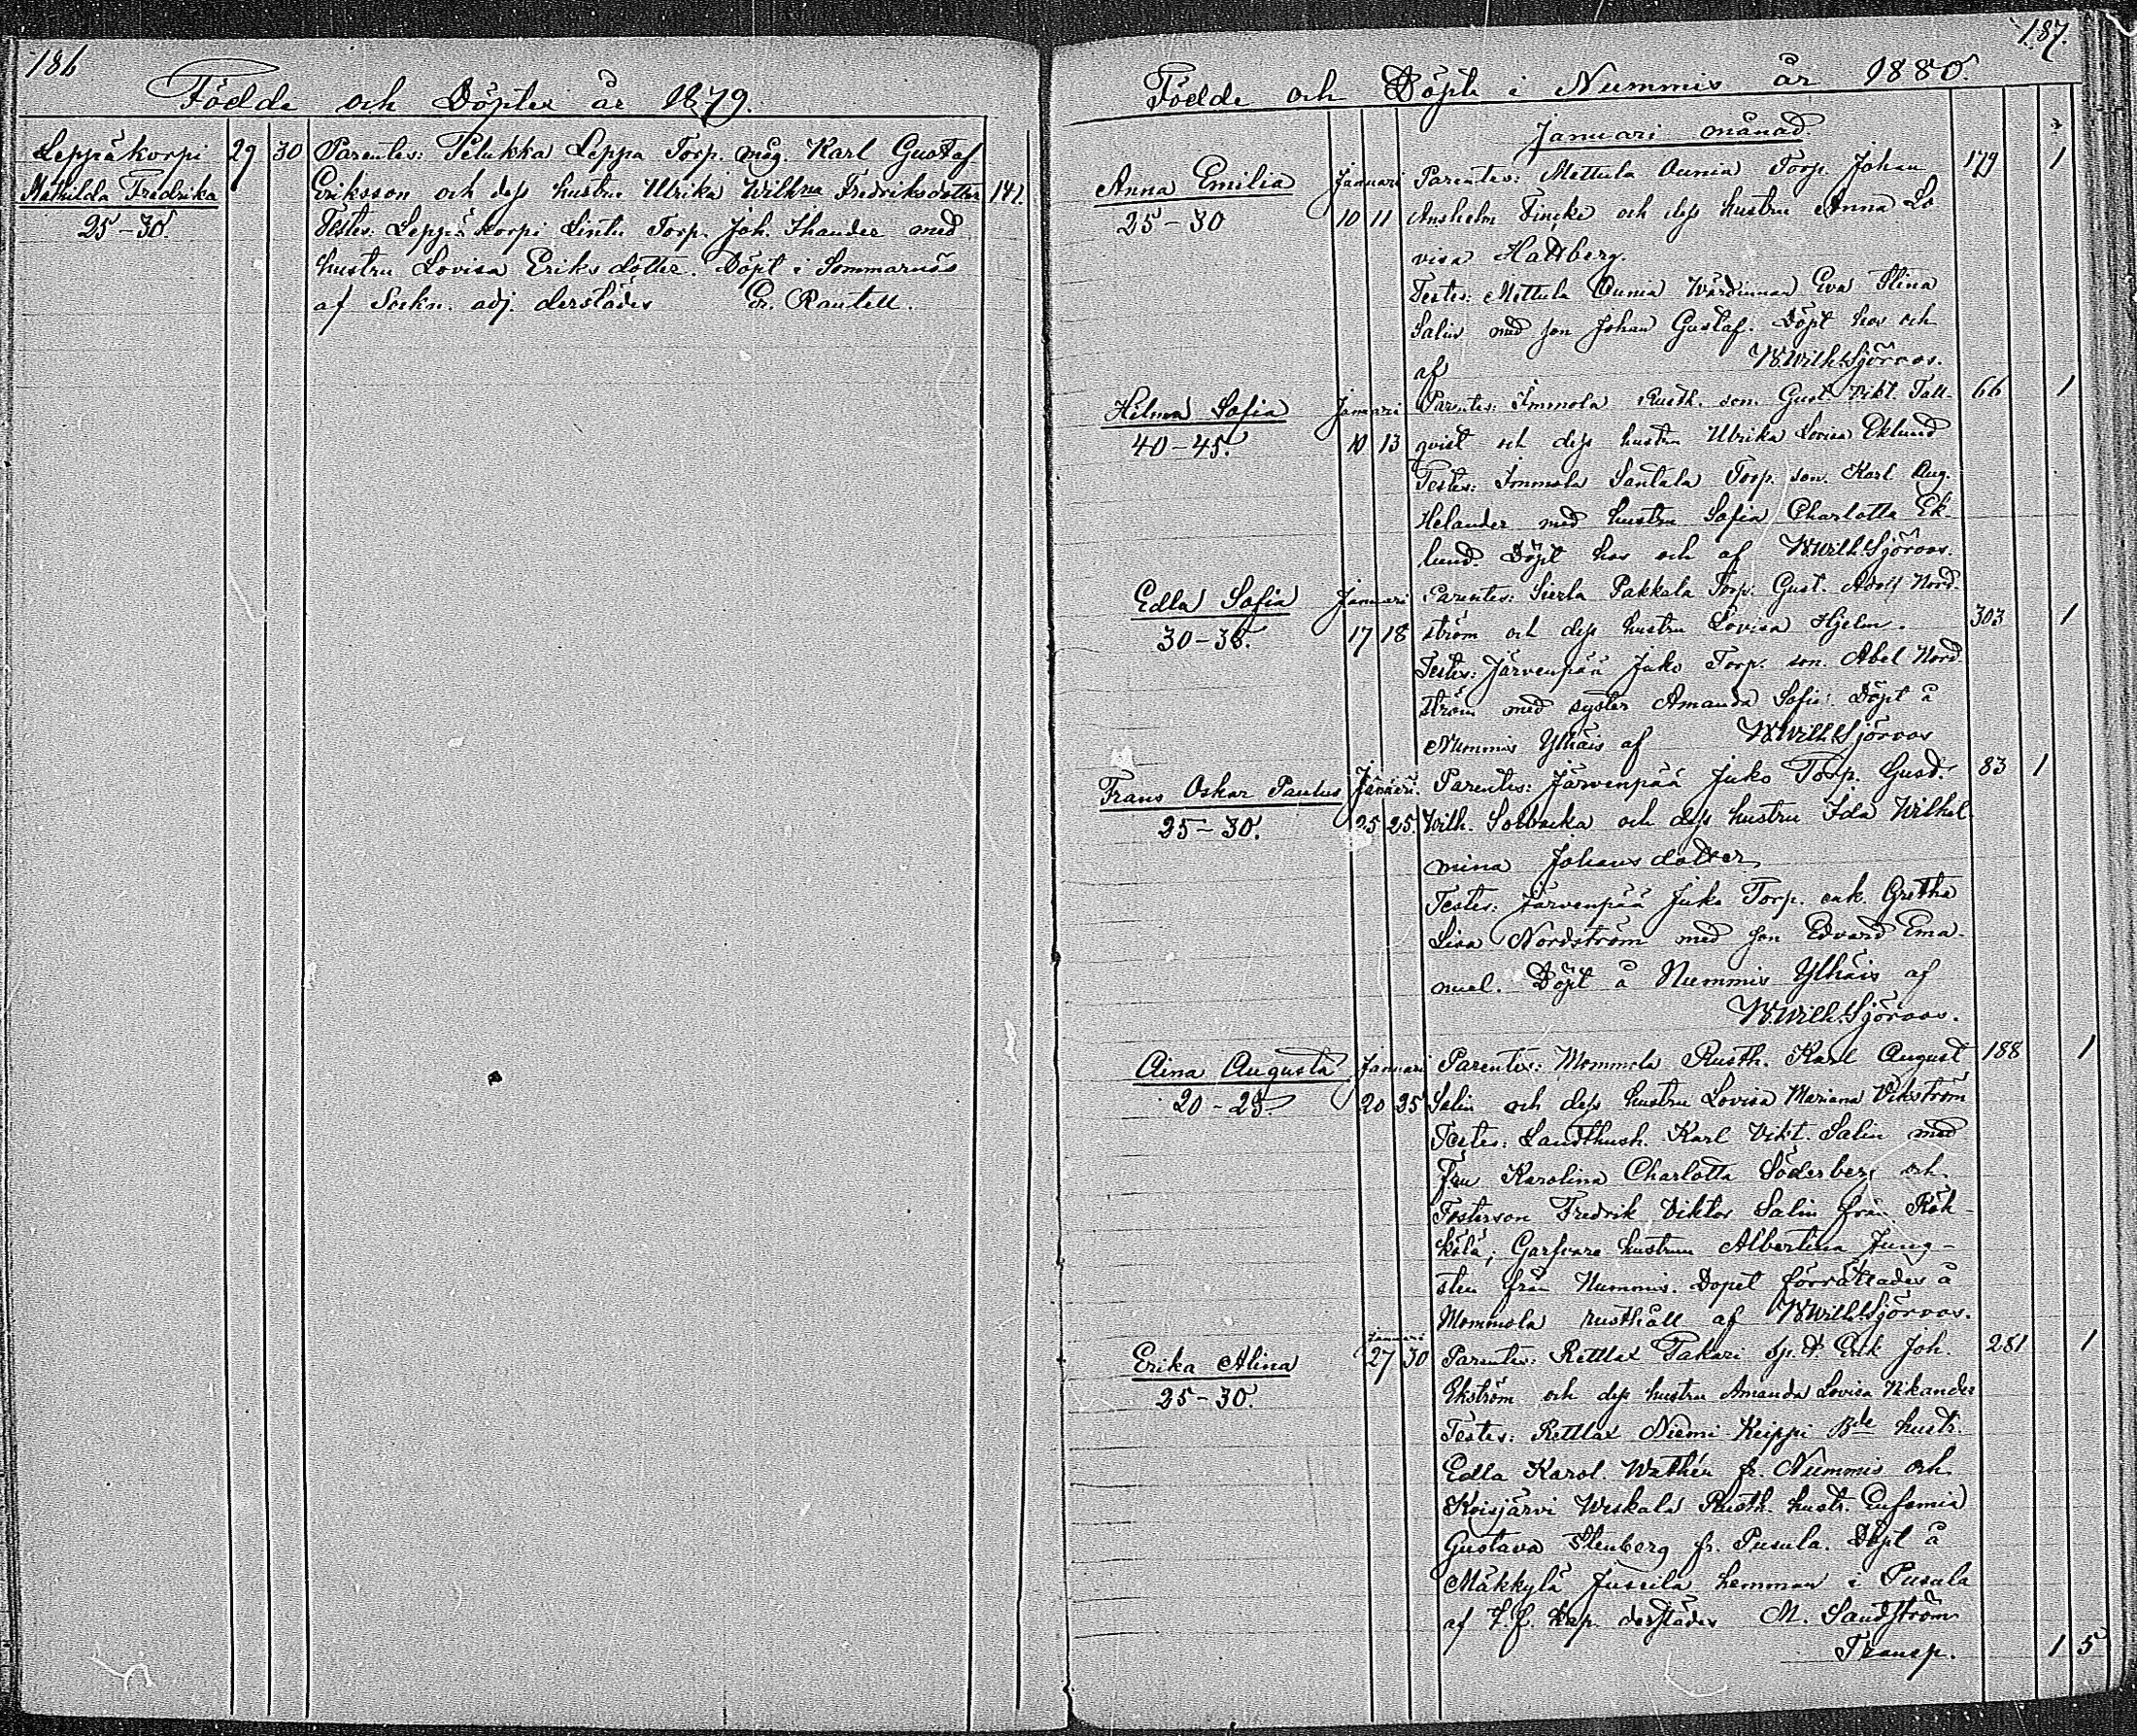 186
Födde och Döpte år 1879.
Leppäkorpi 29 30 Parentes: Pelukka Leppa Torp. måg. Karl Gustaf
Mathilda Fredrika Eriksson och dess hustru Ulrika Wilhna Fredriksdotter 141.
25-30. Testes: Leppäkorpi Lintu Torp. Joh. Thander med
hustru Lovisa Eriksdotter. Döpt i Sommarnäs
af Sockn. adj. derstädes Er. Rantell.
187.
Födde och Döpte i Nummis år 1880.
Januari månad.
Anna Emilia Januari Parentes: Mettula Ounia Torp. Johan 179 1
25-30 10 11 Ansholm Fincke och dess hustru Anna Lo
visa Hallberg.
Testes: Mettula Ounia Wärdinnan Eva Stina
Salin med son Johan Gustaf. Döpt hos och
af W.Wilh.Sjöroos.
Hilma Sofia Januari Parentes: Immola Rusth. son. Gust Vikt. Tall- 66 1
40-45. 10 13 qvist och dess hustru Ulrika Lovisa Eklund
Testes: Immola Santala Torp. son. Karl Aug.
Helander med hustru Sofia Charlotta Ek-
lund. Döpt hos och af W.Wilh.Sjöroos.
Edla Sofia Januari Parentes: Sierla Pakkala Torp. Gust. Adolf Nord-
30-35. 17 18 ström och dess hustru Lovisa Hjelm. 303 1
Testes: Järvenpää Juko Torp. son. Abel Nord-
ström med syster Amanda Sofia. Döpt å
Nummis Ylhäis af W.Wilh.Sjöroos
Frans Oskar Paulus Januari. Parentes: Järvenpää Juko Torp. Gust. 83 1
25-30. 25 25. Wilh. Solbacka och dess hustru Ida Wilhel-
mina Johansdotter
Testes: Järvenpää Juko Torp. enk. Gretha
Lisa Nordström med son Edvard Ema-
nuel. Döpt å Nummis Ylhäis af
W.Wilh.Sjöroos.
Aina Augusta Januari Parentes: Mommola Rusth. Karl August 188 1
20-25 20 25 Salin och dess hustru Lovisa Mariana Vikström
Testes: Landthush. Karl Vikt. Salin med
Fru Karolina Charlotta Söderberg och
Fosterson Fredrik Viktor Salin från Röh-
kölä; Garfvare hustrun Albertina Jung-
sten från Nummis. Dopet förrättades å
Mommola rusthåll af W.Wilh.Sjöroos.
Januari
Erika Alina 27 30 Parentes: Rettlax Takari Erik Joh. 281 1
25-30. Ekström och dess hustru Amanda Lovisa Nikander
Testes: Rettlax Niemi Keippi Bde hustr.
Edla Karol. Wathén fr. Nummis och
Koisjärvi Weskala Rusth. hustr. Eufemia
Gustava Stenberg fr. Pusula. Döpt å
Mäkkylä Jussila hemman i Pusula
af T.f. Kap. derstädes M. Sandström
Transp. 1 5